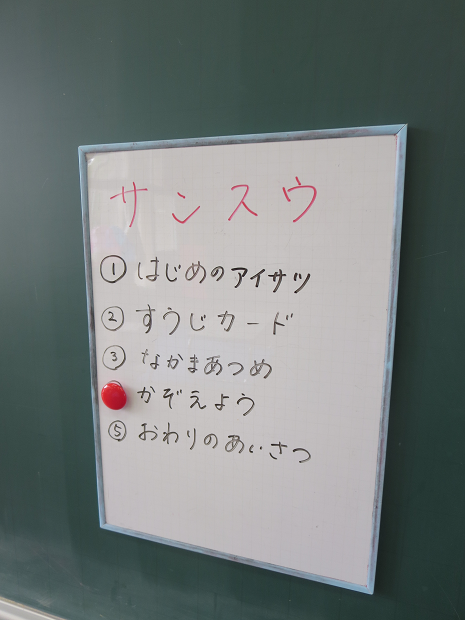 サンスウ
① はじめのアイサツ
② すうじカード
③ なかまあつめ
かぞえよう
⑤ おわりのあいさつ